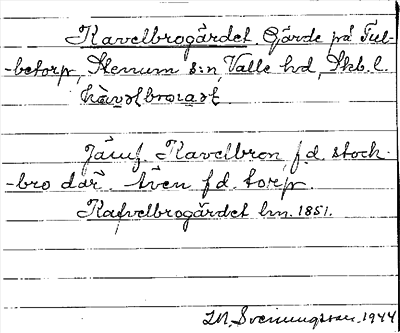 Kavelbrogärdet. Gärde på Ful-
-betorp, Stenum s:n, Valle hd, Skb. l.

Jämf. Kavelbron f.d. stock-
-bro där. Även f.d. torp.
Kafvelbrogärdet lm. 1851.
Svenungsson. 1944